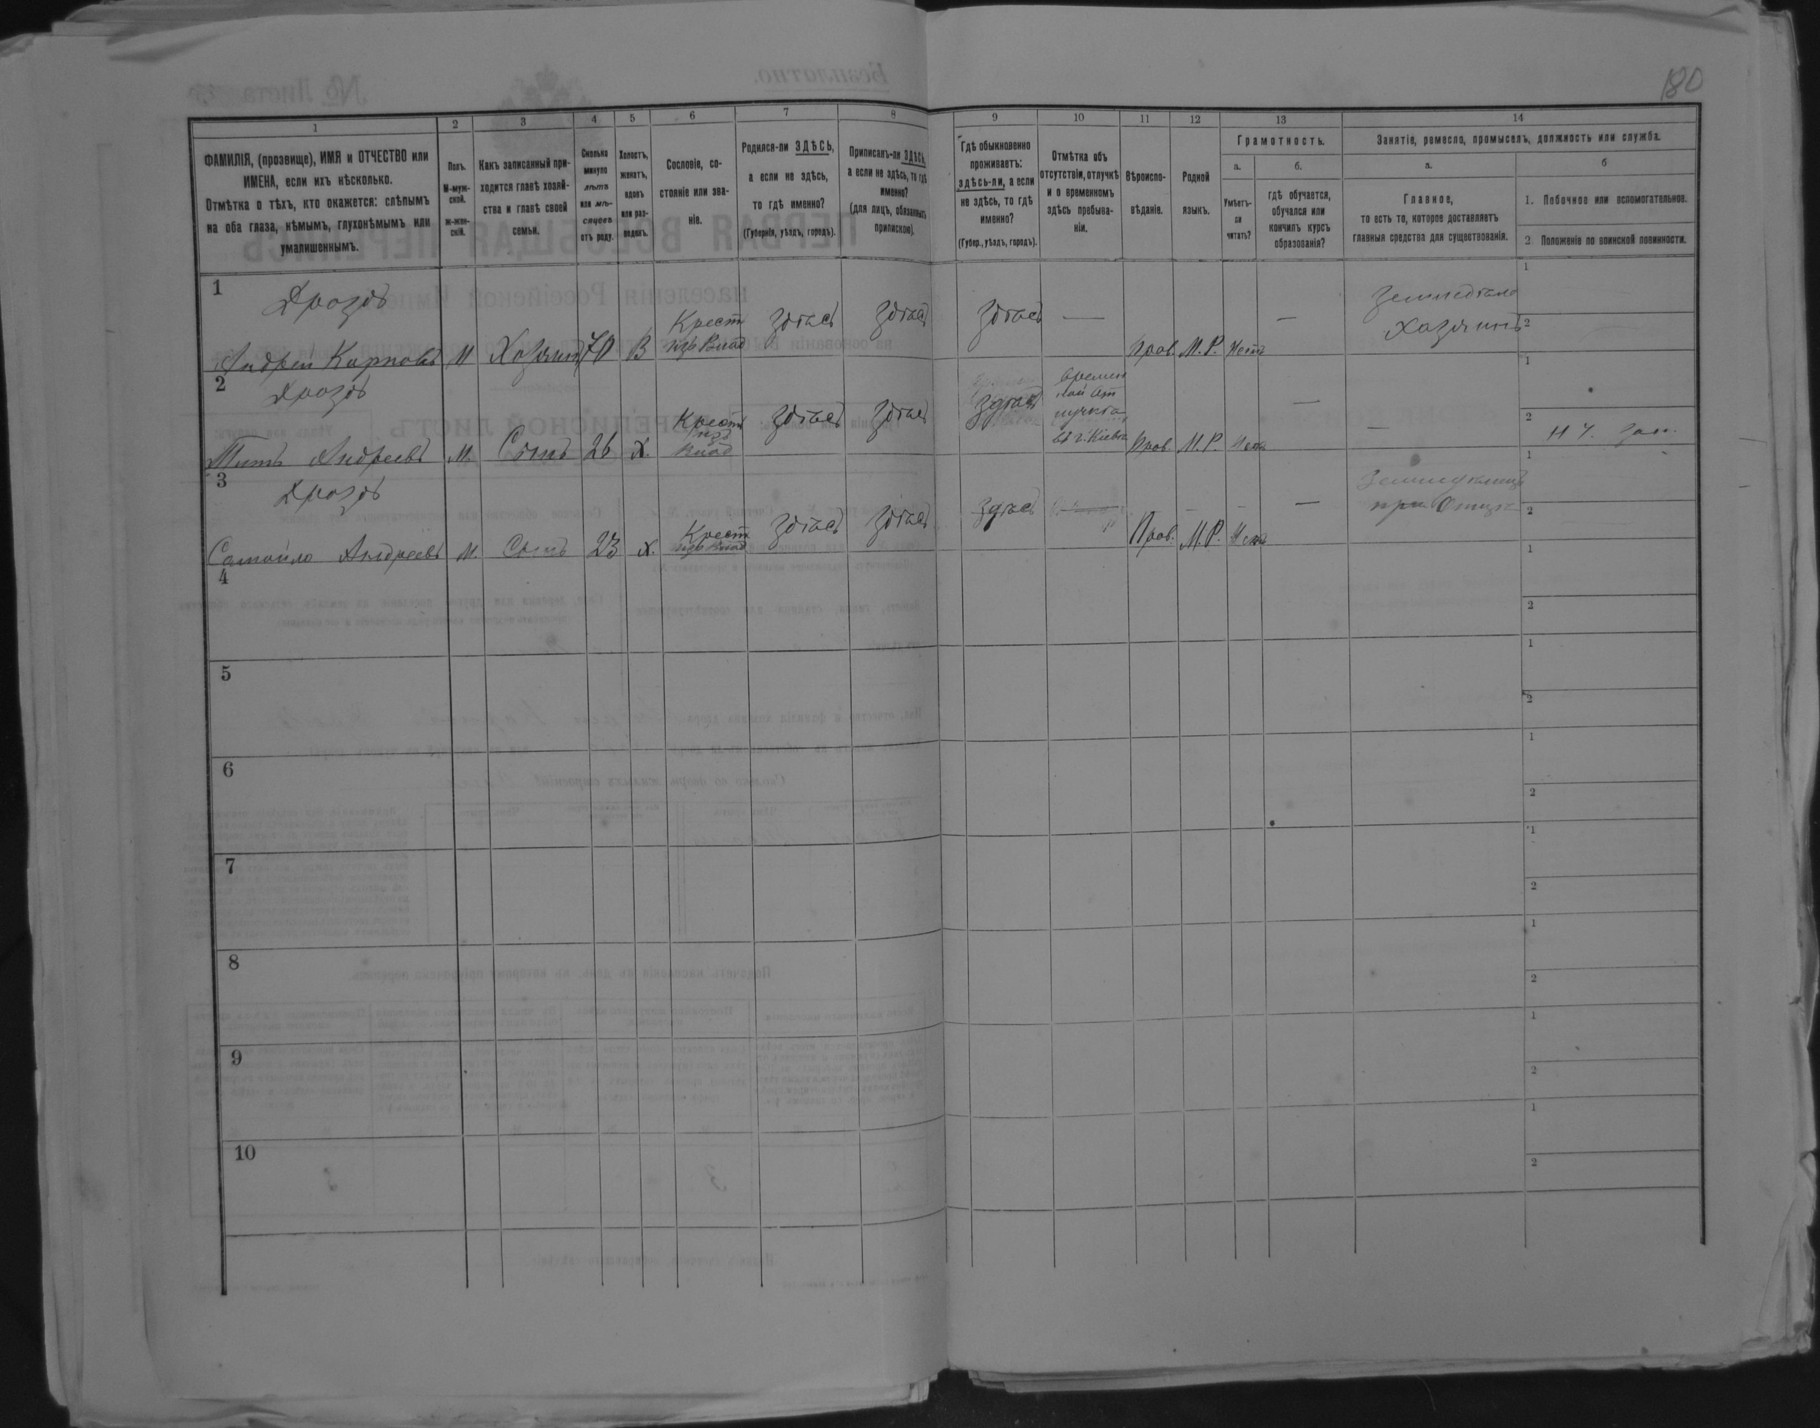 180
1
2
3
4
5
6
7
8
9
10
11
12
13
14
ФАМИЛІЯ, (прозвище), ИМЯ и ОТЧЕСТВО или
ИМЕНА, если ихъ нѣсколько.
Отмѣтка о тѣхъ, кто окажется: слѣпымъ
на оба глаза, нѣмымъ, глухонѣмымъ или
умалишеннымъ.
Полъ.
М-муж-
ской.
Ж-жен-
скій.
Какъ записанный при-
ходится главѣ хозяй-
ства и главѣ своей
семьи.
Сколько
минуло
лѣтъ
или мѣ-
сяцевъ
отъ роду.
Холостъ,
женатъ,
вдовъ
или раз-
веденъ.
Сословіе, со-
стояніе или зва-
ніе.
Родился-ли ЗДѢСЬ,
а если не здѣсь,
то гдѣ именно?
(Губернія, уѣздъ, городъ).
Приписанъ-ли ЗДѢСЬ,
а если не здѣсь, то гдѣ
именно?
(для лицъ, обязанныхъ
припискою).
Гдѣ обыкновенно
проживаетъ:
здѣсь-ли, а если
не здѣсь, то гдѣ
именно?
(Губер., уѣздъ, городъ).
Отмѣтка объ
отсутствіи, отлучкѣ
и о временномъ
здѣсь пребыва-
ніи.
Вѣроиспо-
вѣданіе.
Родной
языкъ.
Грамотность.
а.
Умѣетъ-
ли
читать?
б.
гдѣ обучается,
обучался или
кончилъ курсъ
образованія?
Занятіе, ремесло, промыселъ, должность или служба.
а.
Главное,
то есть то, которое доставляетъ
главныя средства для существованія.
б
1. Побочное или вспомогательное.
2. Положеніе по воинской повинности.
1
Дроздъ
Андрей Карповъ
М
Хозяинъ
70
В
Крест
изр Влад
здѣсь
здѣсь
здѣсь
—
Прав.
М.Р.
Нетъ
—
Хозяинъ
1
2
2
Дроздъ
Титъ Андреевъ
М.
Сынъ
26
Х.
Крест
Влад
здѣсь
здѣсь
здѣсь
въ г. Кіевѣ
Прав.
М.Р.
Нетъ
—
—
1
2
3
Дроздъ
Самойло Андреевъ
М
Сынъ
23
Х.
Крест
изр Влад
здѣсь
здѣсь
здѣсь
Прав.
М.Р.
Нетъ
—
при Отцѣ
1
2
4
1
2
5
1
2
6
1
2
7
1
2
8
1
2
9
1
2
10
1
2